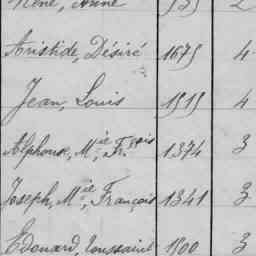 René, Aimé 2
Aristide, Désiré 1675 4
Jean, Louis 1515 4
Alphonse, Mie, Frois 1374 3
Joseph, Mie, François 1341 3
Edouard, Toussaint 1500 3